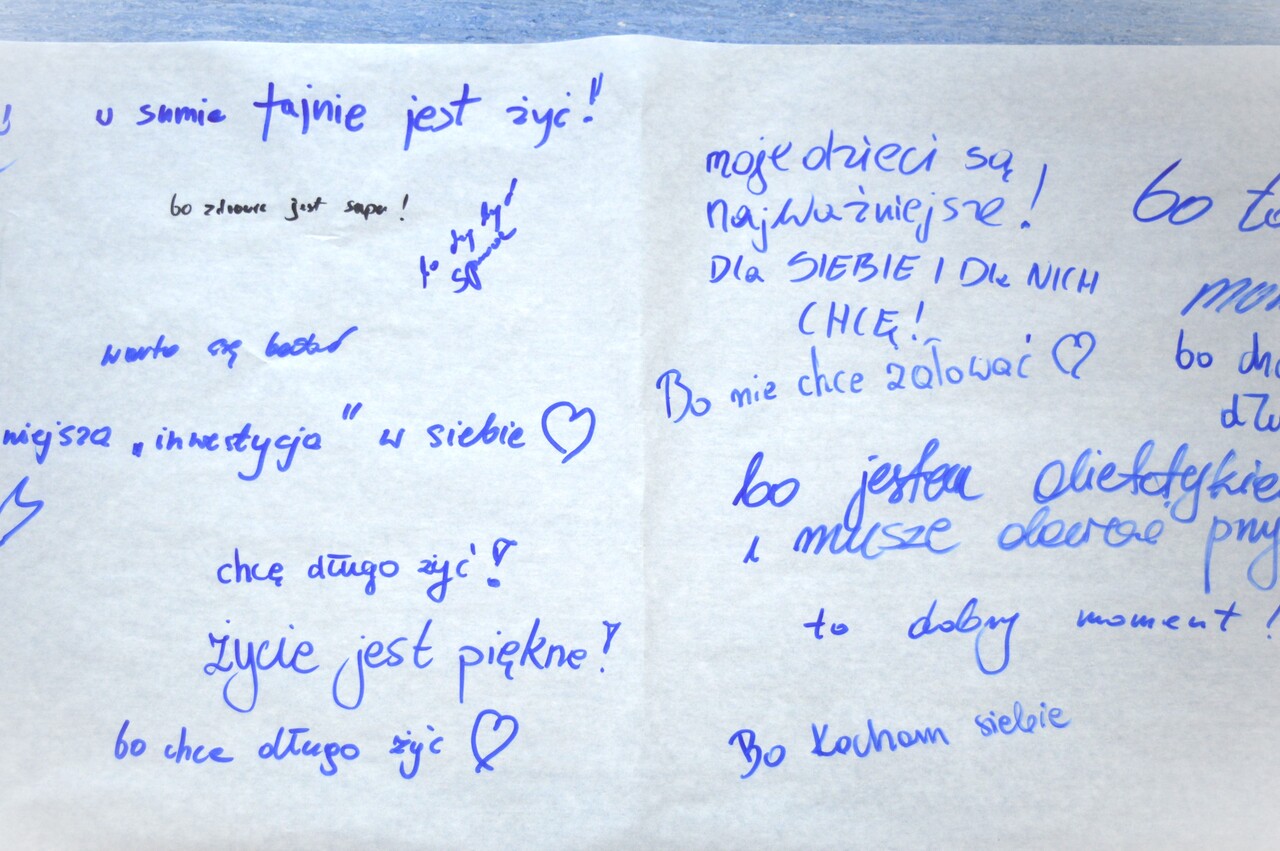 w sumie fajnie jest żyć!!
bo zdrowie jest super!
bo
warto się badać
niejsza „inwestycja" w siebie ♡
chcę długo żyć!
życie jest piękne!
bo chce długo żyć ♡
moje dzieci są
najważniejsze!
DLa SIEBIE I DLa NICH
CHCĘ!
Bo nie chce żałować ♡
bo jestem dietetykie
i musze dawać przy
to dobry moment!
Bo Kocham siebie
bo to
bo chc
dłu